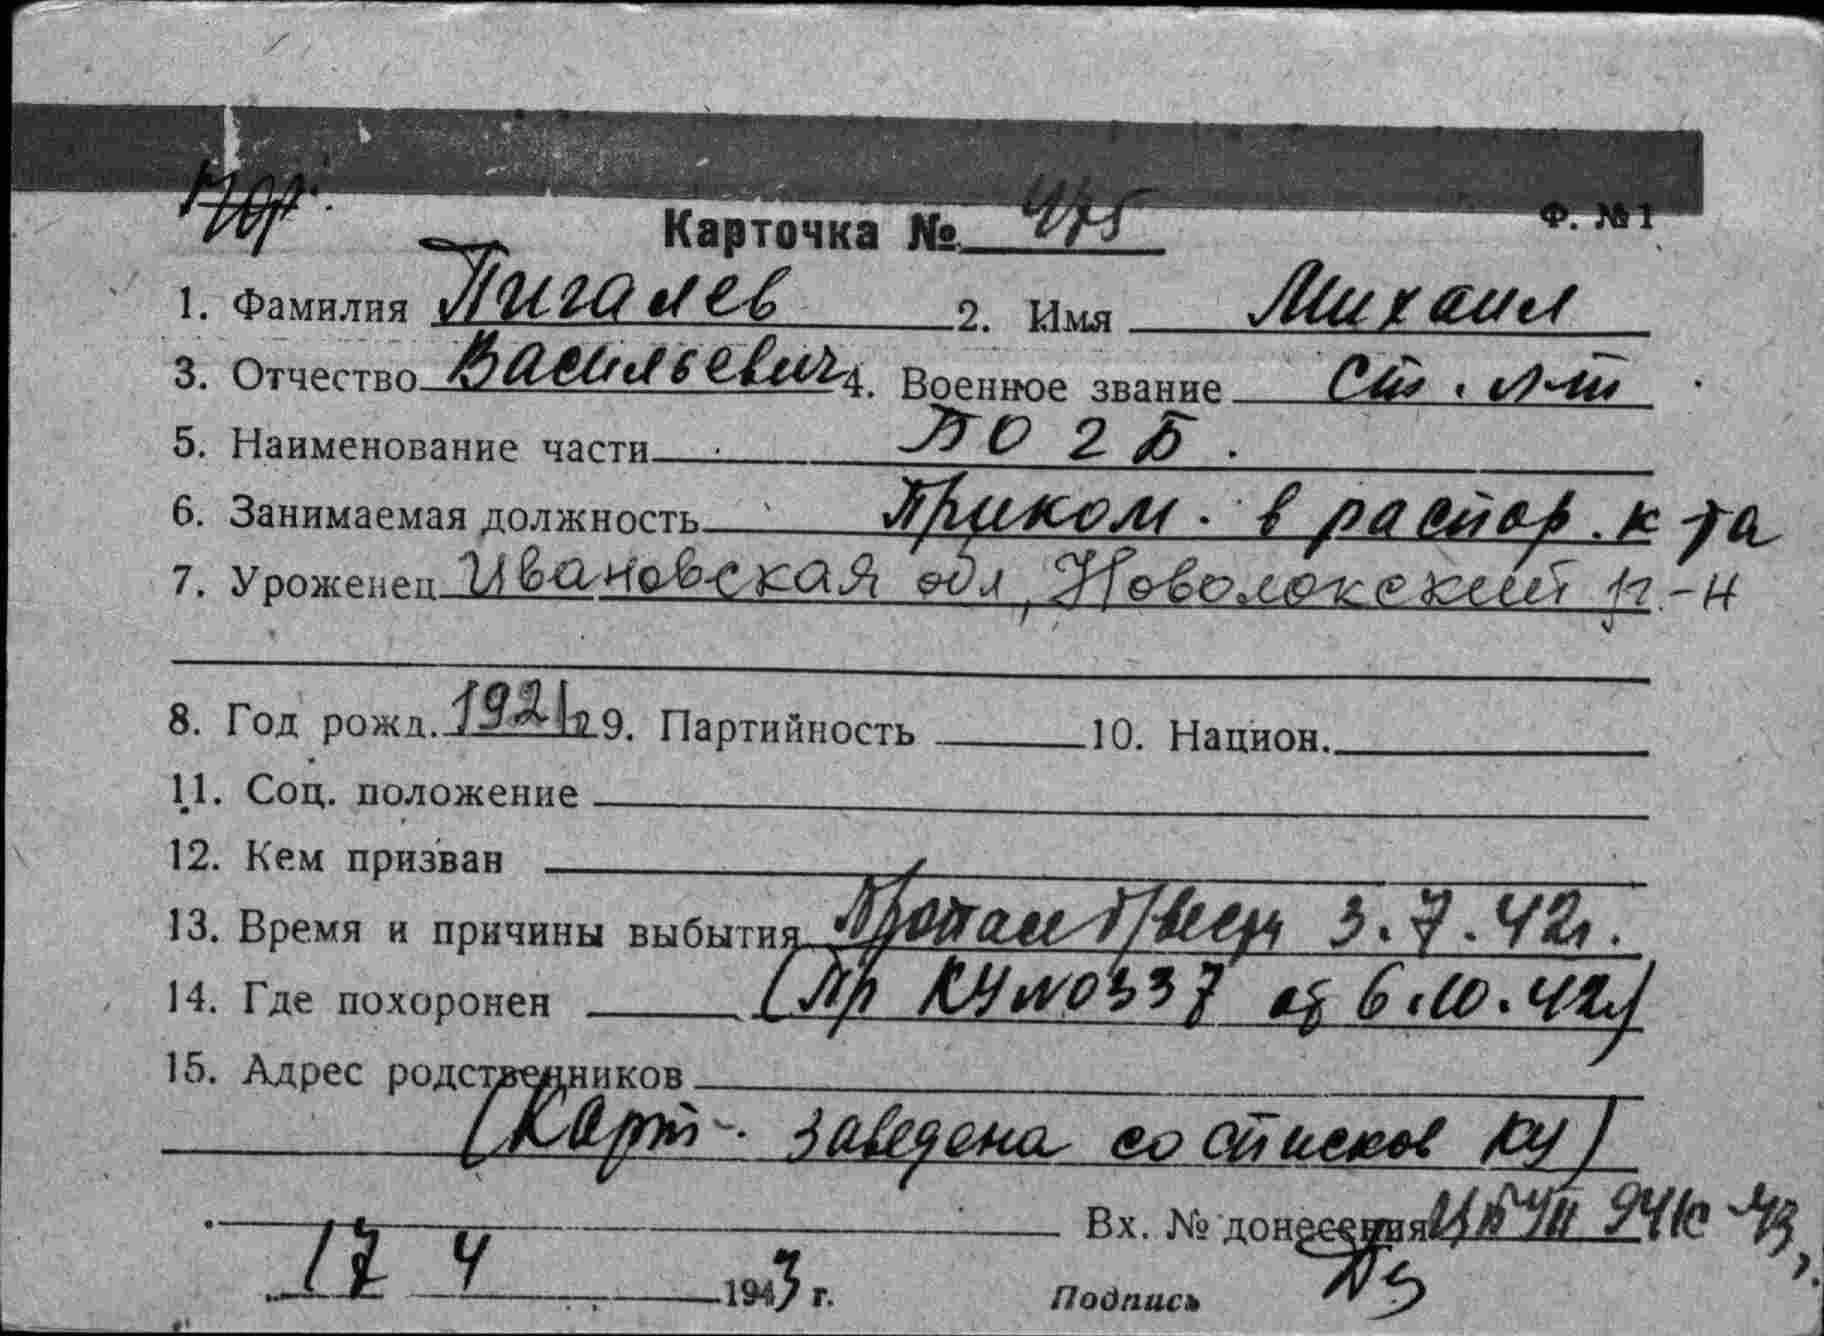 Ф. №1
Карточка № 475
1. Фамилия Пигалев 2. Имя Михаил
3. Отчество Васильевич 4. Военное звание ст. л-т
5. Наименование части БО 2 Б.
6. Занимаемая должность Приком. в распор. к-та
7. Уроженец Ивановская обл, Новолокский р-н
8. Год рожд. 1921г 9. Партийность 10. Национ.
11. Соц. положение
12. Кем призван
13. Время и причины выбытия Пропал б/вести 3.7.42г.
14. Где похоронен (Пр КУ №0337 от 6.10.42г)
15. Адрес родственников
(Карт. заведена со списков КУ)
Вх. № донесения 941с-43
17 4 1943 г. Подпись